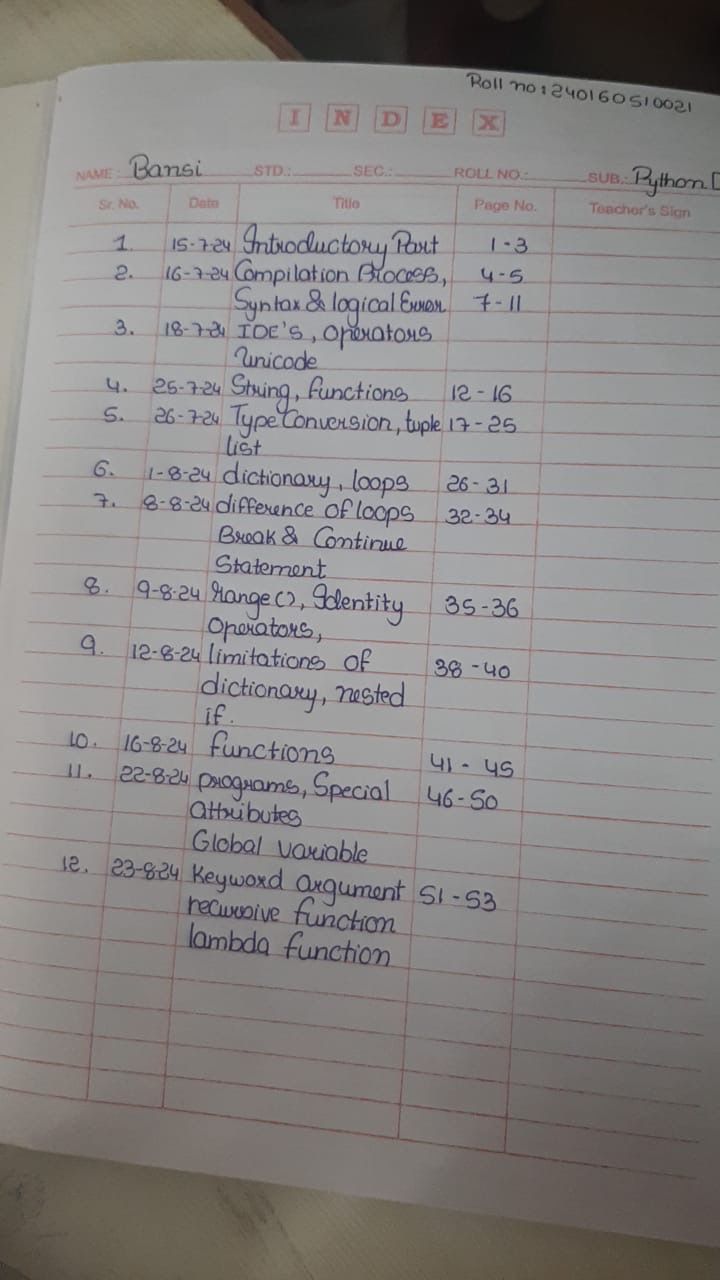 Roll no: 240160510021
INDEX
NAME: Bansi STD.: SEC.: ROLL NO.: SUB.: Python
Sr. No. Date Title Page No. Teacher's Sign
1. 15-7-24 Introductory Part 1-3
2. 16-7-24 Compilation Process, 4-5
Syntax & logical Error 7-11
3. 18-7-24 IDE'S, Operators
Unicode
4. 25-7-24 String, functions 12-16
5. 26-7-24 Type Conversion, tuple 17-25
list
6. 1-8-24 dictionary, loops 26-31
7. 8-8-24 difference of loops 32-34
Break & Continue
Statement
8. 9-8-24 range(), Identity 35-36
Operators,
9. 12-8-24 limitations of 38-40
dictionary, nested
if.
10. 16-8-24 functions 41-45
11. 22-8-24 programs, Special 46-50
Attributes
Global variable
12. 23-8-24 Keyword argument 51-53
recursive function
lambda function